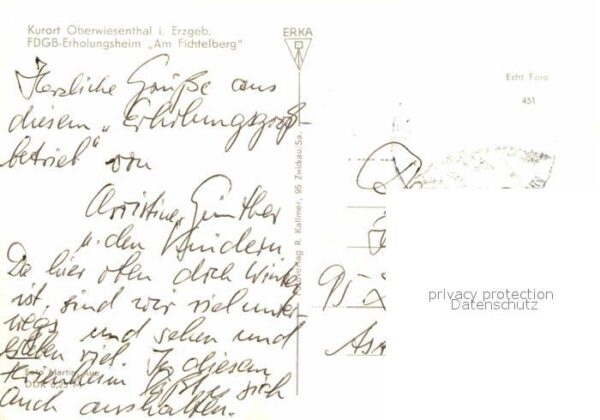 Kurort Oberwiesenthal i. Erzgeb.
FDGB-Erholungsheim „Am Fichtelberg"
ERKA
Echt Foto
451
Herzliche Grüße aus
diesem „Erholungsgroß-
betrieb" von
Christine, Günther
u. den Kindern
Da hier oben doch Winter
ist, sind wir viel unter-
wegs und sehen und
erleben viel. In diesem
läßt es sich
auch aushalten.
R. Kallmer, 95 Zwickau/Sa.
95
privacy protection
Datenschutz
Foto
DDR 0,25 M